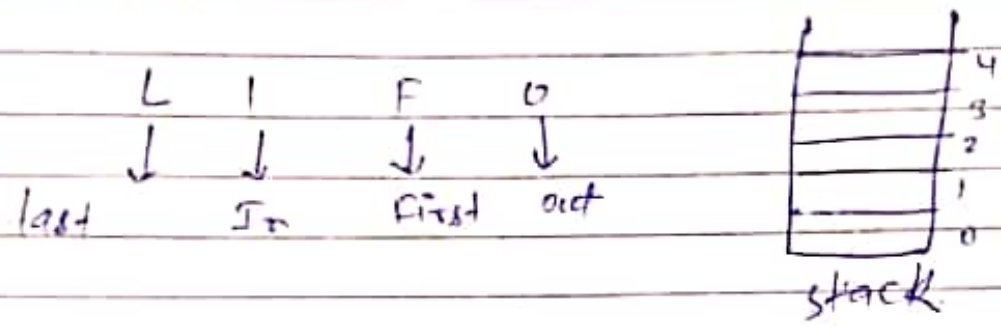 L I F O
last In First out
4
3
2
1
0
stack